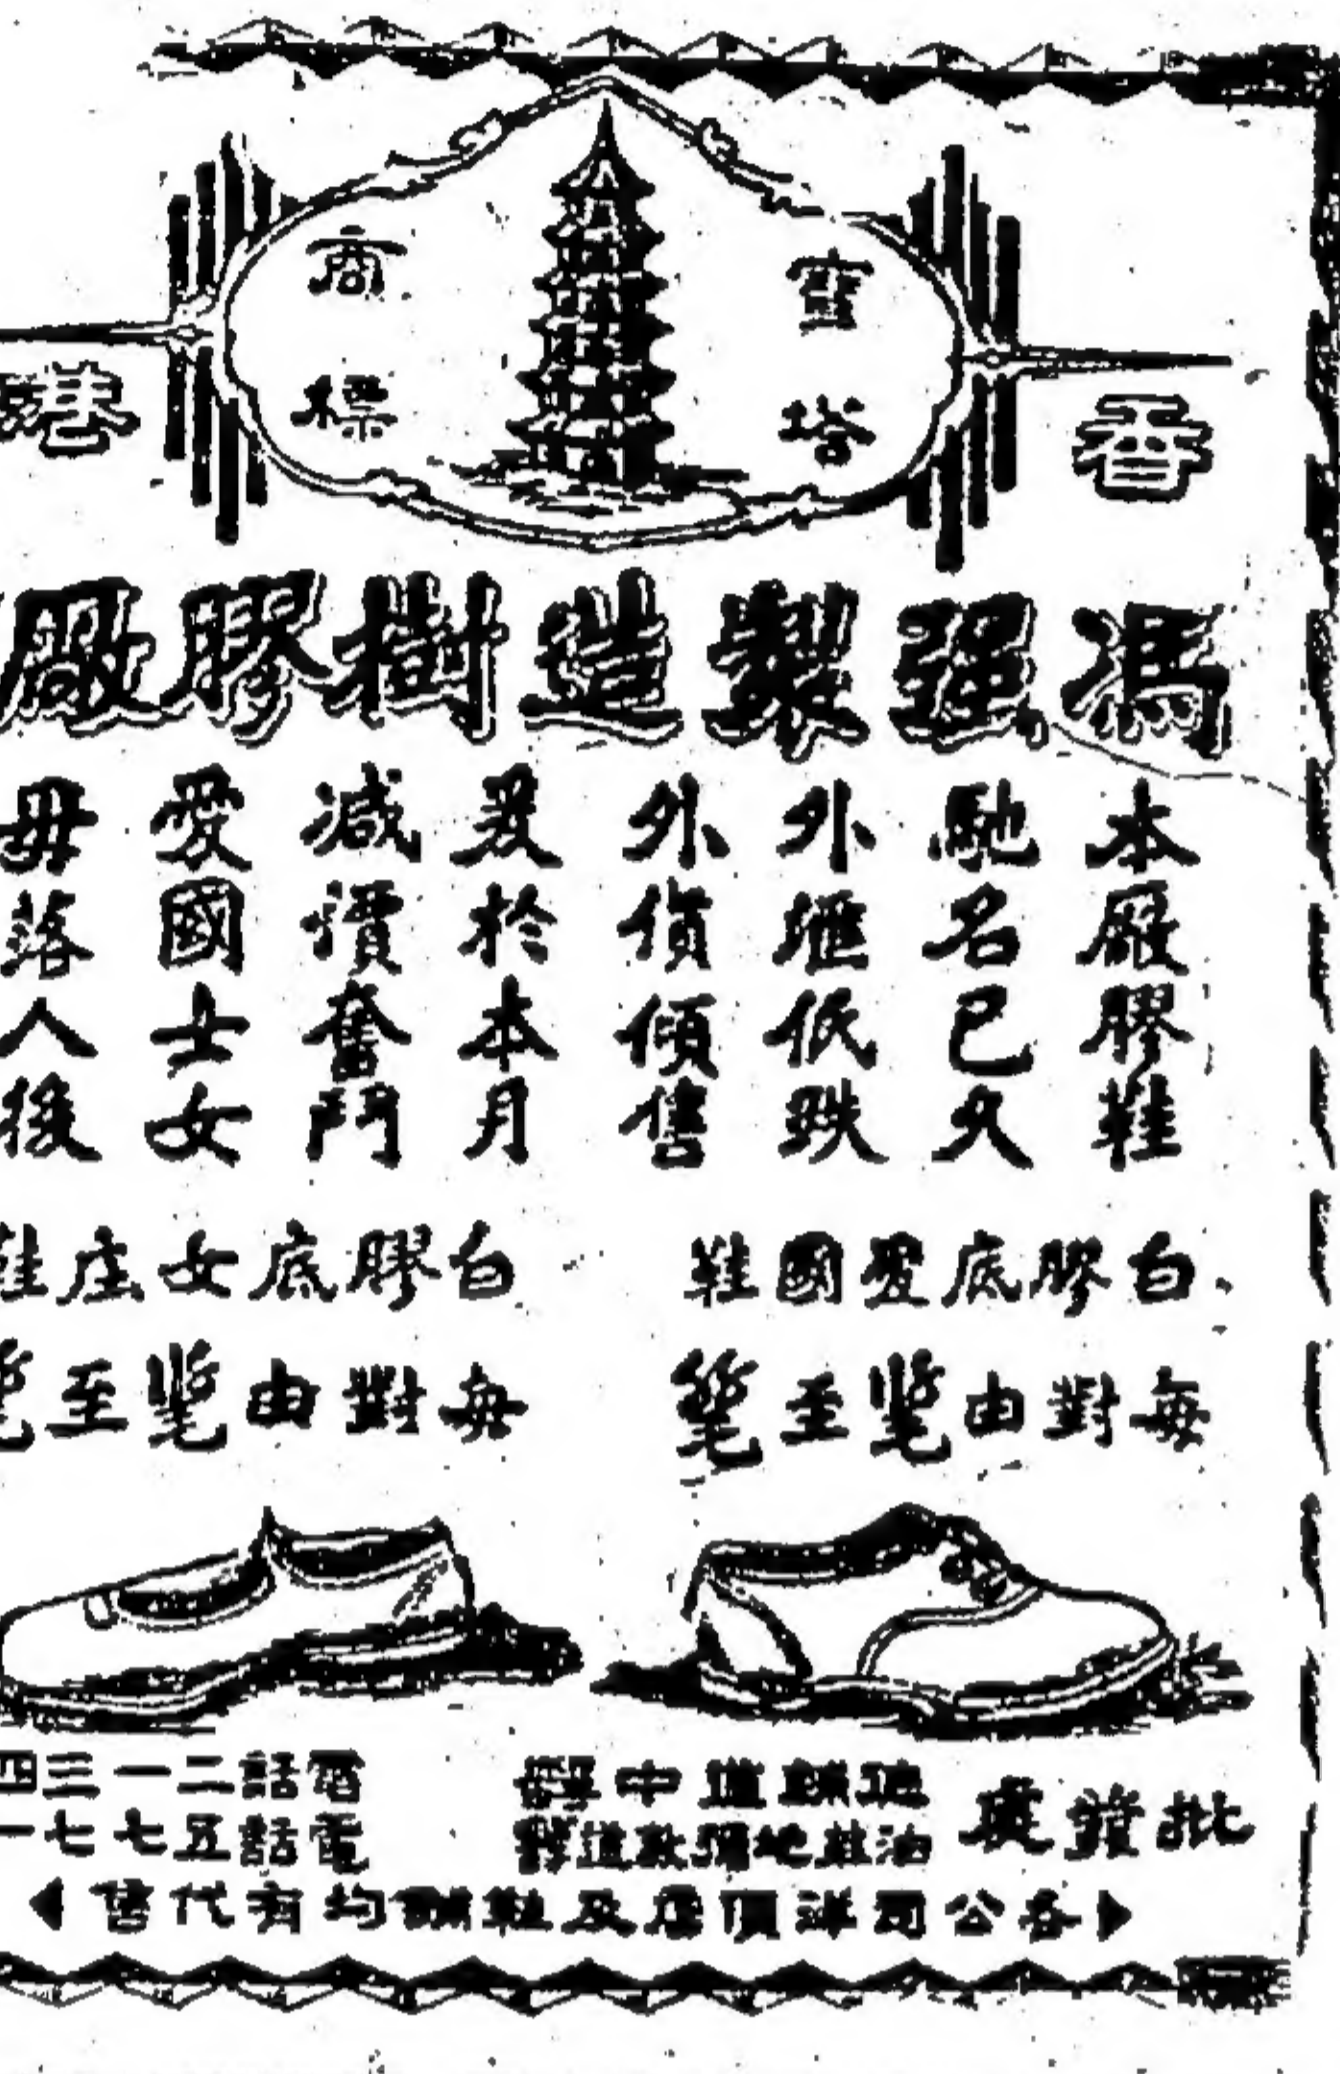 寶塔
商標
香港
馮强製造樹膠廠
本廠膠鞋
馳名已久
外滙低跌
外貨傾售
爰於本月
减價奮鬥
愛國士女
毋落人後
白膠底愛國鞋
每對由至
白膠底女庄鞋
每對由至
批發處
德輔道中
油蔴地彌敦道
電話二一三四
電話五七七一
各公司洋貨店及鞋舖均有代售